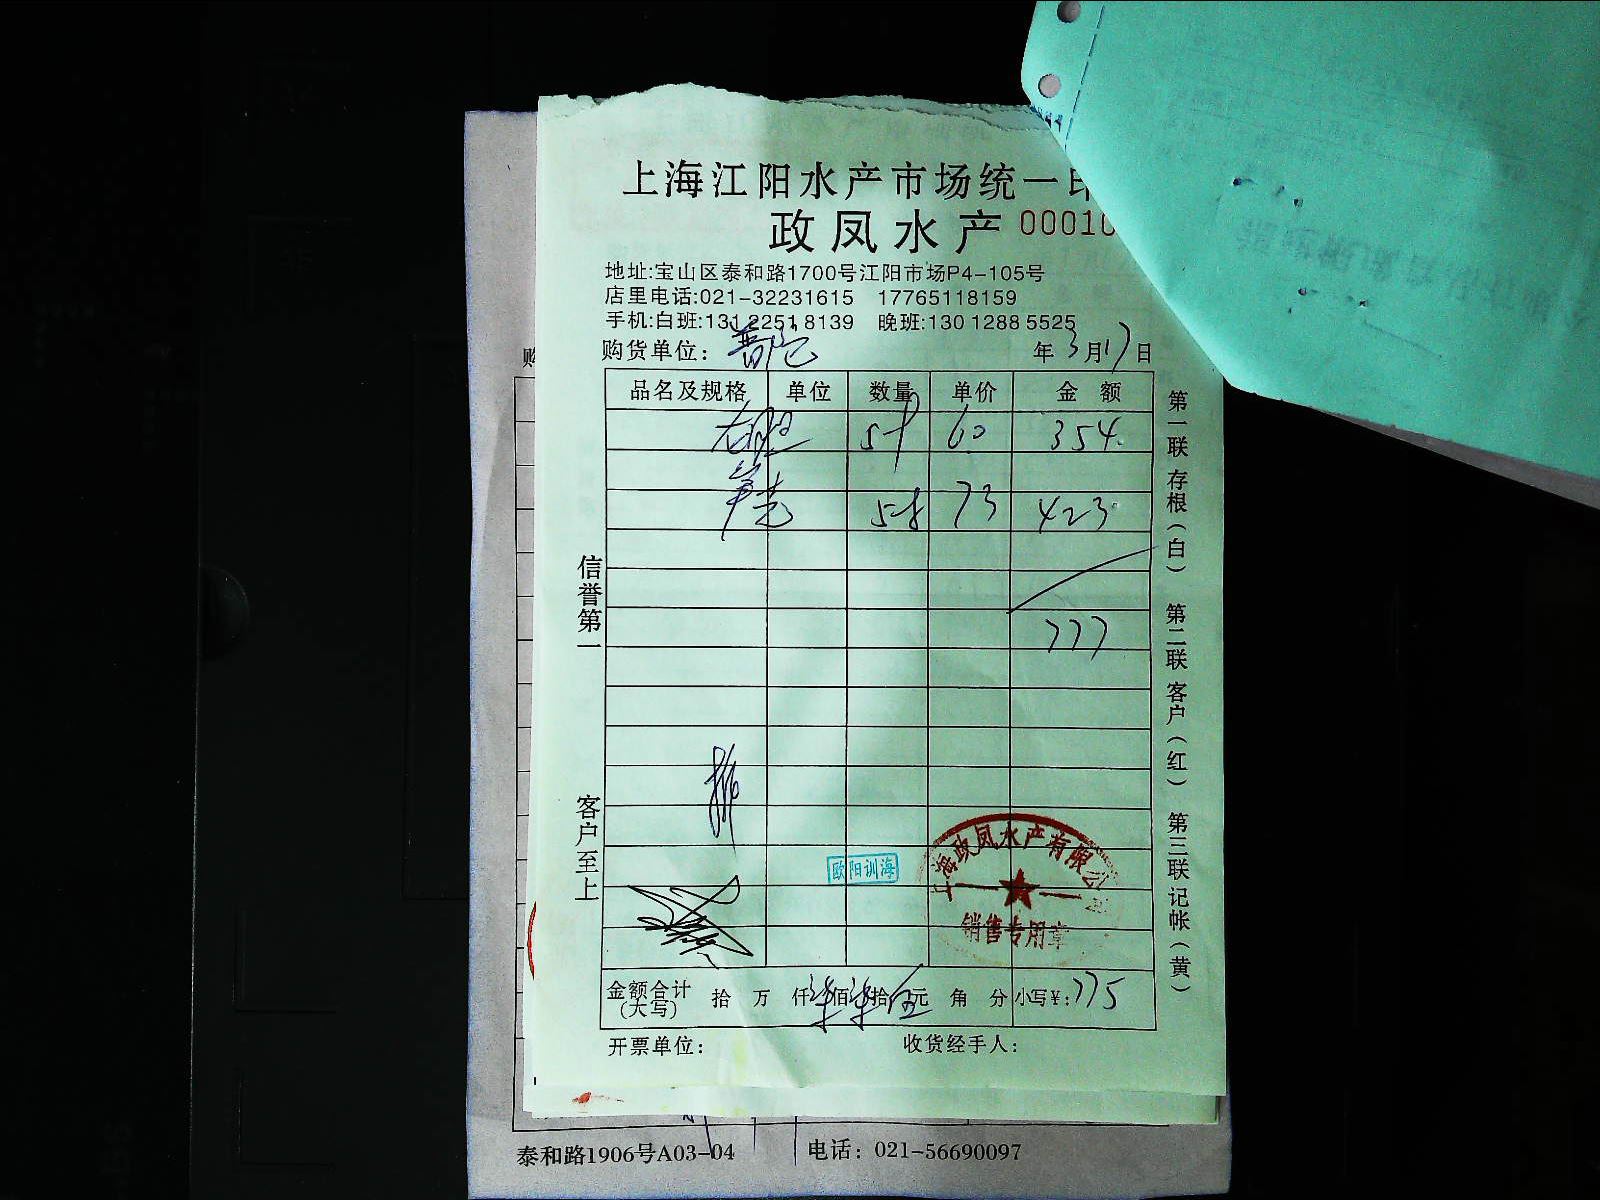 上海江阳水产市场统一印
政凤水产 00010
地址:宝山区泰和路1700号江阳市场P4-105号
店里电话:021-32231615 17765118159
手机:白班:131 2251 8139 晚班:130 1288 5525
购货单位: 普陀 年3月17日
品名及规格 单位 数量 单价 金额
60 354
73 423
777
信誉第一
客户至上
第一联 存根(白) 第二联 客户(红) 第三联 记帐(黄)
欧阳训海
上海政凤水产有限公司
销售专用章
金额合计(大写) 拾 万 仟柒佰柒拾伍元 角 分 小写¥:775
开票单位: 收货经手人:
购
泰和路1906号A03-04 电话: 021-56690097